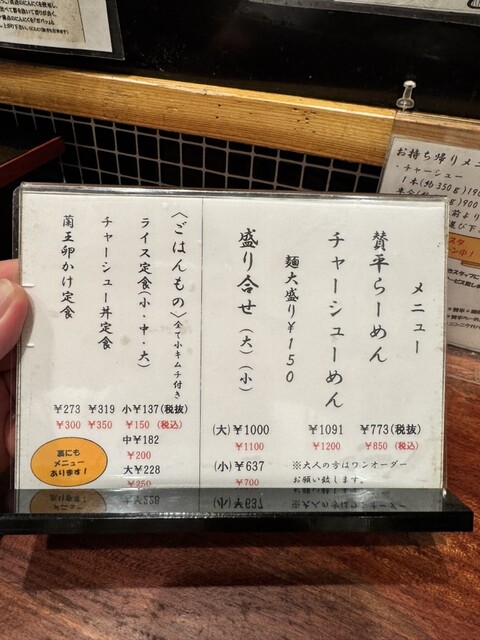 メニュー
賛平らーめん
¥773(税抜)
¥850(税込)
チャーシューめん
¥1091
¥1200
麺大盛り¥150
※大人の方はワンオーダー
お願い致します。
盛り合せ(大)(小)
(大)¥1000
¥1100
(小)¥637
¥700
〈ごはんもの〉全て小キムチ付き
ライス定食(小・中・大)
小¥137(税抜)
¥150(税込)
中¥182
¥200
大¥228
¥250
チャーシュー丼定食
¥319
¥350
蘭王卵かけ定食
¥273
¥300
裏にも
メニュー
あります!
お持ち帰りメニ
・チャーシュー
1本(約350g)190